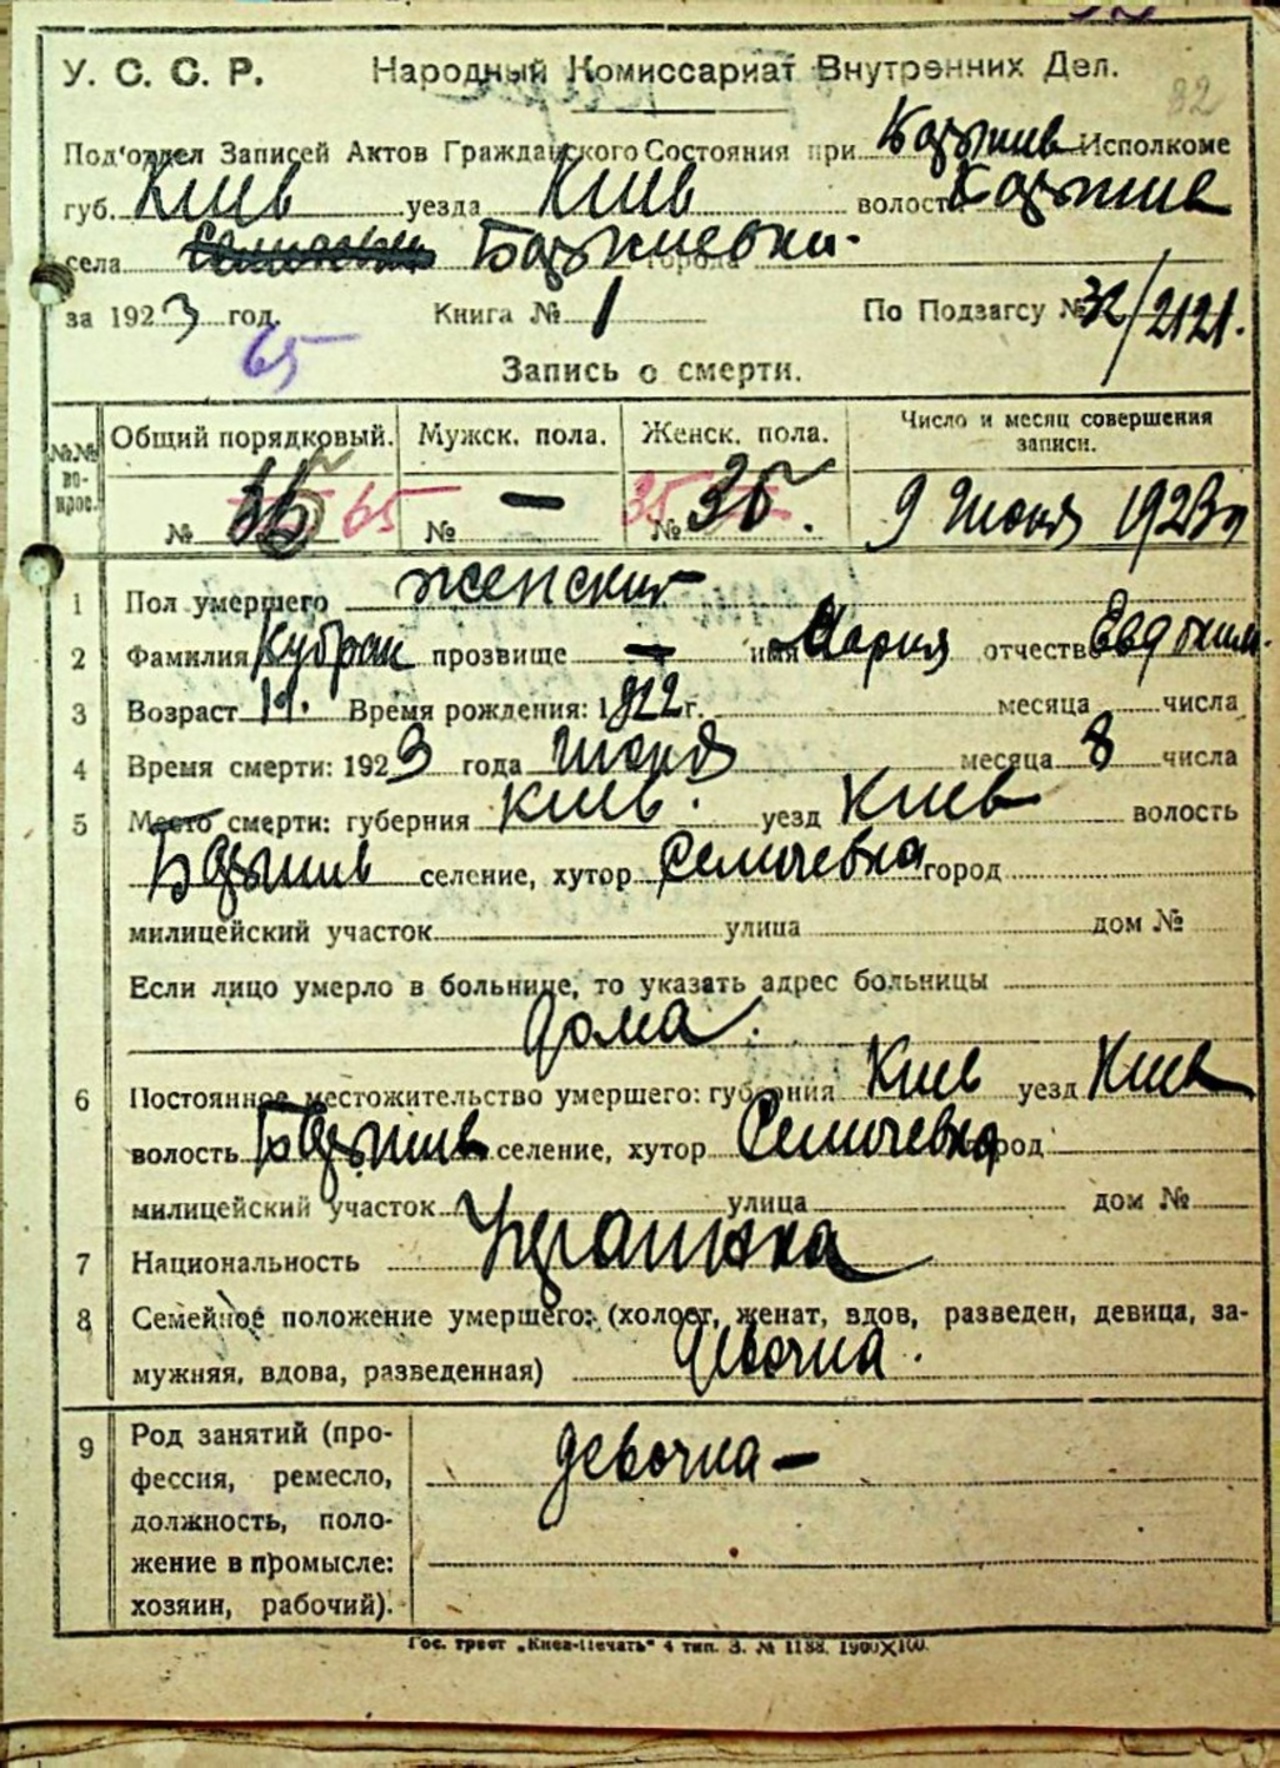 У. С. С. Р. Народный Комиссариат Внутренних Дел.
82
Под'отдел Записей Актов Гражданского Состояния при Исполкоме
губ. Киев уезда Киев волости
села города
за 1923 год. Книга № 1 По Подзагсу № 32/2121.
65
Запись о смерти.
№№ вопрос. Общий порядковый. Мужск. пола. Женск. пола. Число и месяц совершения записи.
№ 65 № — 35 № 35. 9 Июня 1923 г
1 Пол умершего женский
2 Фамилия прозвище — имя Мария отчество Евдоким.
3 Возраст Время рождения: 1922 г. месяца числа
4 Время смерти: 1923 года Июня месяца 8 числа
5 Место смерти: губерния Киев. уезд Киев волость
селение, хутор Семичевка город
милицейский участок улица дом №
Если лицо умерло в больнице, то указать адрес больницы
Дома.
6 Постоянное местожительство умершего: губерния Киев уезд Киев
волость селение, хутор Семичевка город
милицейский участок улица дом №
7 Национальность
8 Семейное положение умершего: (холост, женат, вдов, разведен, девица, за-
мужняя, вдова, разведенная) девочка.
9 Род занятий (про-
фессия, ремесло,
должность, поло-
жение в промысле:
хозяин, рабочий).
девочка —
Гос. трест „Киев-Печать" 4 тип. З. № 1188. 1900X100.